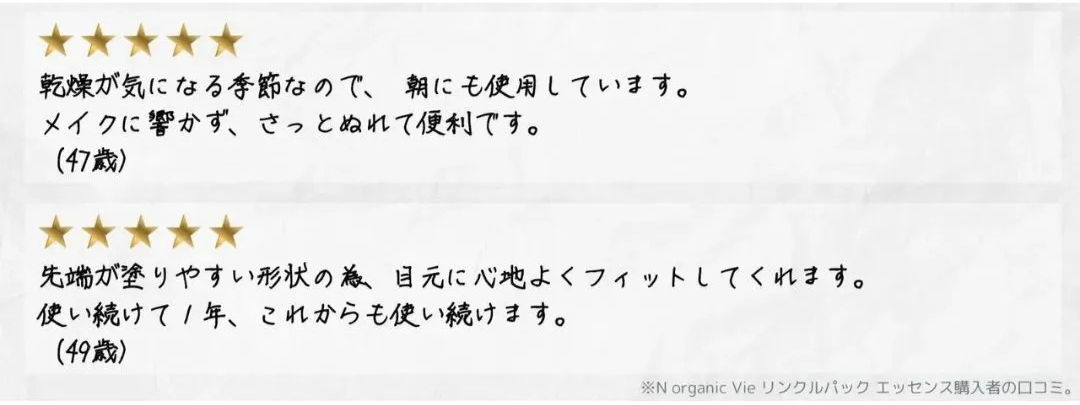 乾燥が気になる季節なので、 朝にも使用しています。
メイクに響かず、さっとぬれて便利です。
(47歳)
先端が塗りやすい形状の為、目元に心地よくフィットしてくれます。
使い続けて1年、これからも使い続けます。
(49歳)
※N organic Vie リンクルパック エッセンス購入者の口コミ。